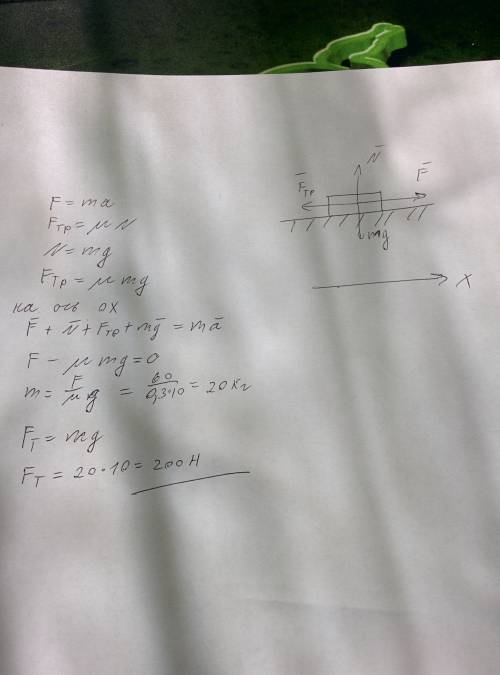 F = ma
Fтр = μ N
N = mg
Fтр = μ mg
на ось ox
F̄ + N̄ + Fтр + mḡ = mā
F - μ mg = 0
m = F/μg = 60/0,3·10 = 20 кг
Fт = mg
Fт = 20·10 = 200 Н
N̄
F̄тр
F̄
mg
X